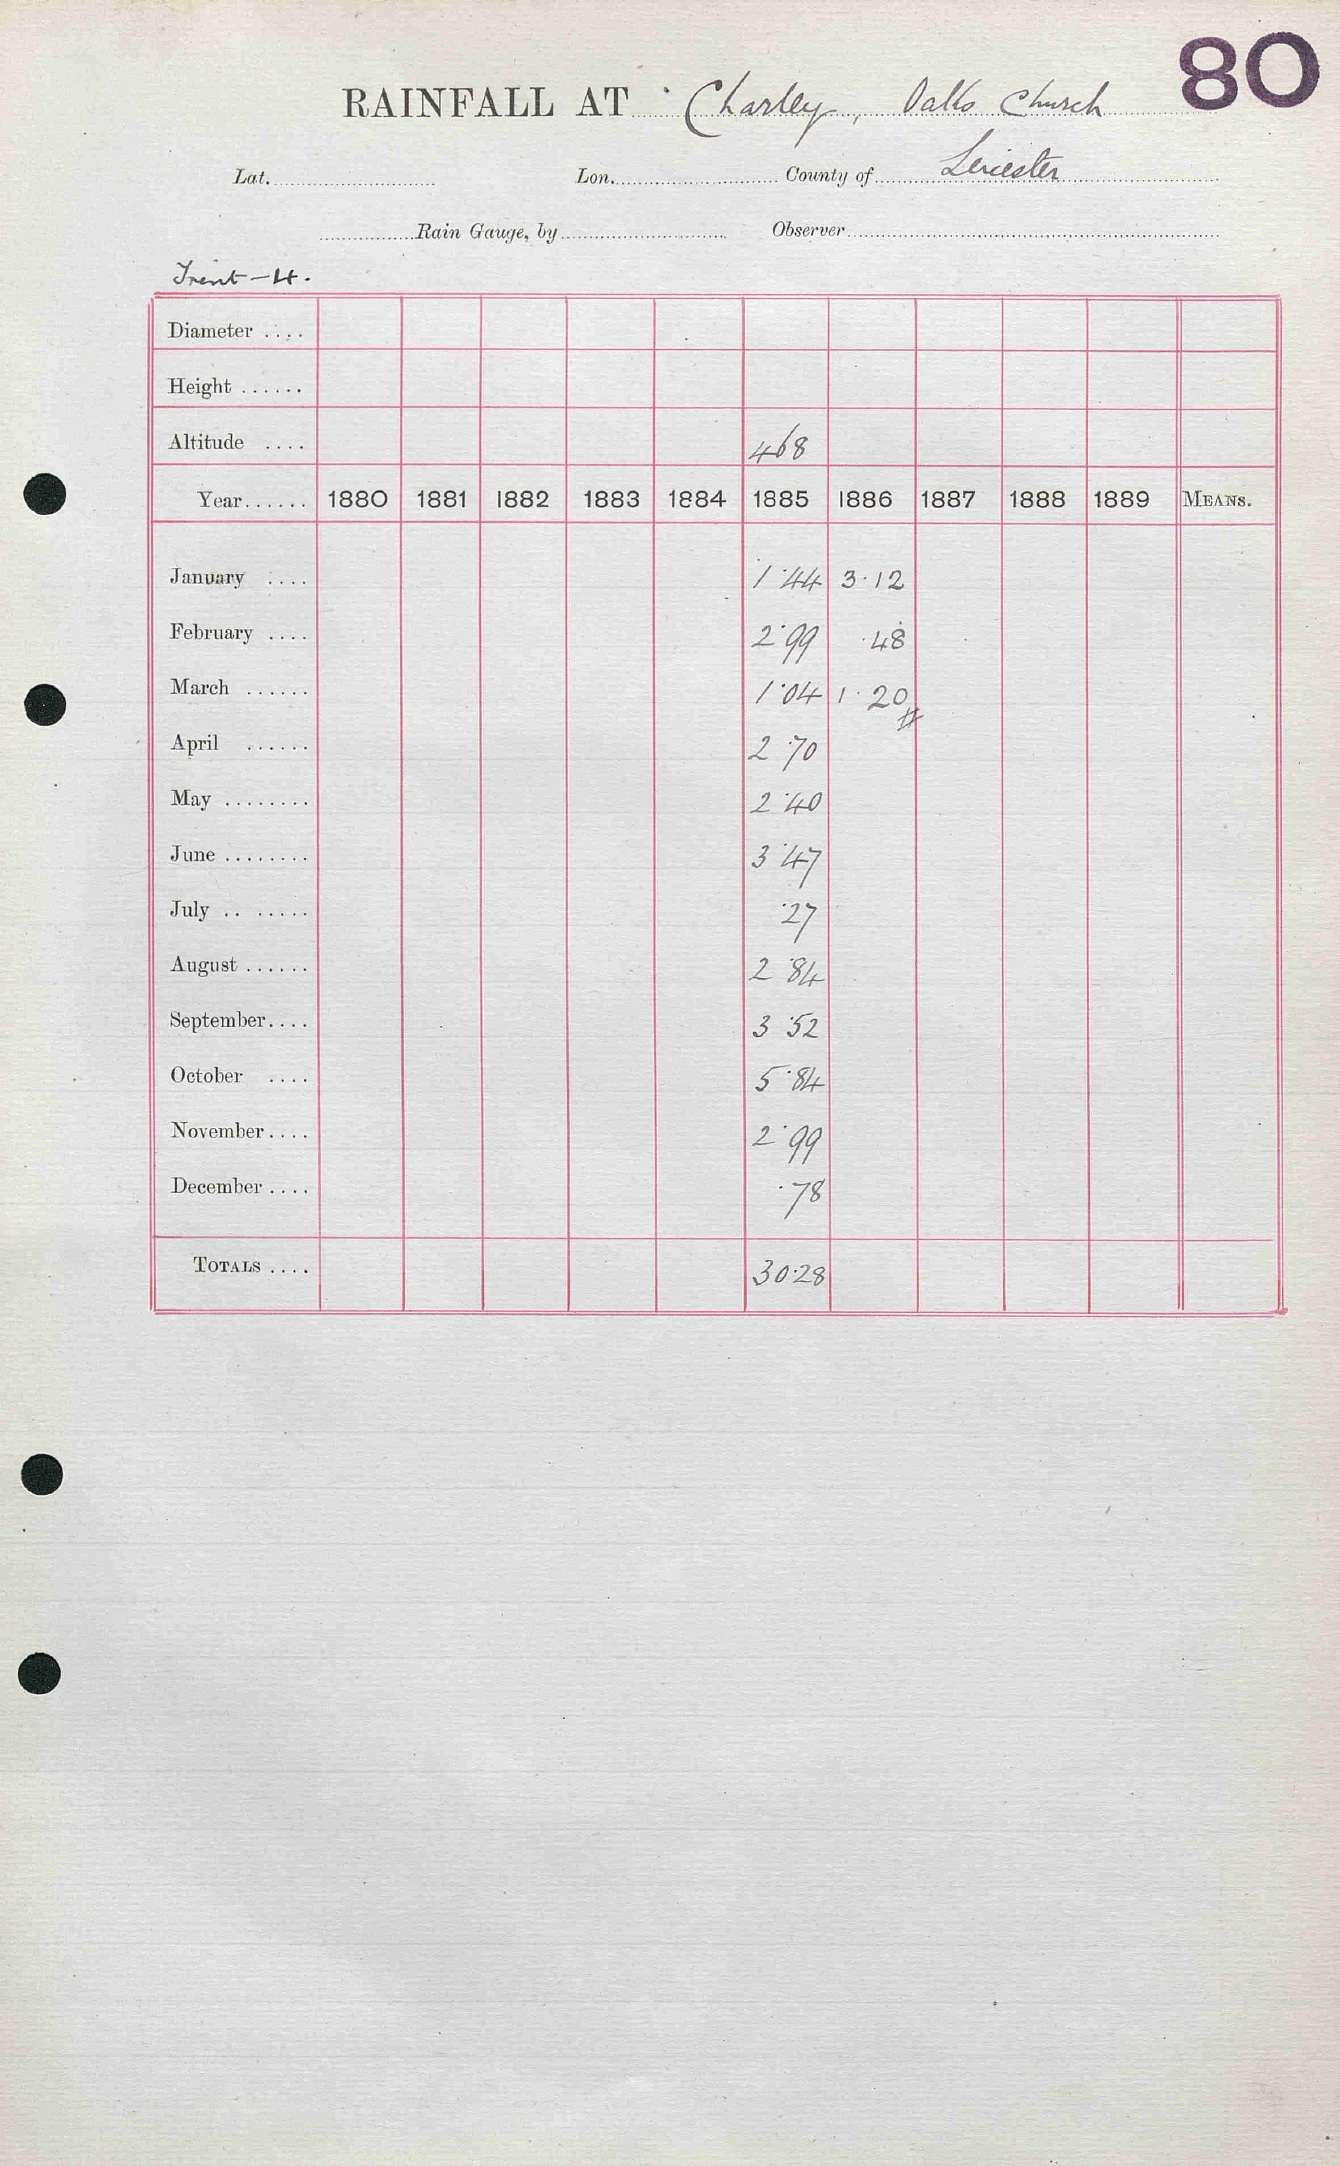 80
RAINFALL AT Charley, Oaks Church
Lat. Lon. County of Leicester
Rain Gauge, by Observer
Trent-4.
Diameter ....
Height ......
Altitude .... 468
Year...... 1880 1881 1882 1883 1884 1885 1886 1887 1888 1889 MEANS.
January .... 1.44 3.12
February .... 2.99 .48
March ...... 1.04 1.20 #
April ...... 2.70
May ........ 2.40
June ........ 3.47
July .. ...... .27
August ...... 2.84
September.... 3.52
October .... 5.84
November.... 2.99
December .... .78
TOTALS .... 30.28